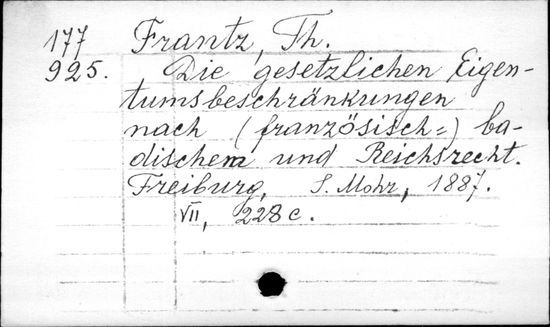 177 Frantz, Th.
925. Die gesetzlichen Eigen-
tumsbeschränkungen
nach (französisch=) ba-
dischem und Reichsrecht.
Freiburg, S. Mohr, 1887.
VII, 228 c.